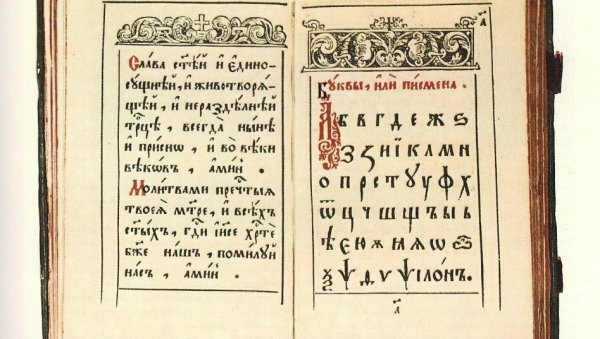 Сла́ва ст҃ѣ́й и҆ є҆дино-
сꙋ́щнѣй, и҆ животворѧ́-
щей, и҆ нераздѣ́лнѣй
трⷪ҇цѣ, всегда̀ ны́нѣ
и҆ при́снѡ, и҆ во вѣ́ки
вѣкѡ́въ, а҆ми́нь.
Моли́твами пречⷭ҇тыѧ
твоеѧ̀ мт҃ре, и҆ всѣ́хъ
ст҃ы́хъ, гдⷭ҇и і҆и҃се хрⷭ҇тѐ
бж҃е на́шъ, поми́лꙋй
на́съ, а҆ми́нь.
Бꙋ́квы, и҆лѝ пи́смена.
А Б В Г Д Е Ж Ѕ
З Ꙁ И Ї К Л М Н
О П Р С Т Ꙋ У Ф Х
Ѿ Ц Ч Ш Щ Ъ Ы Ь
Ѣ Є Ю Ѫ Ꙗ Ѧ Ѡ Ѽ
Ѱ